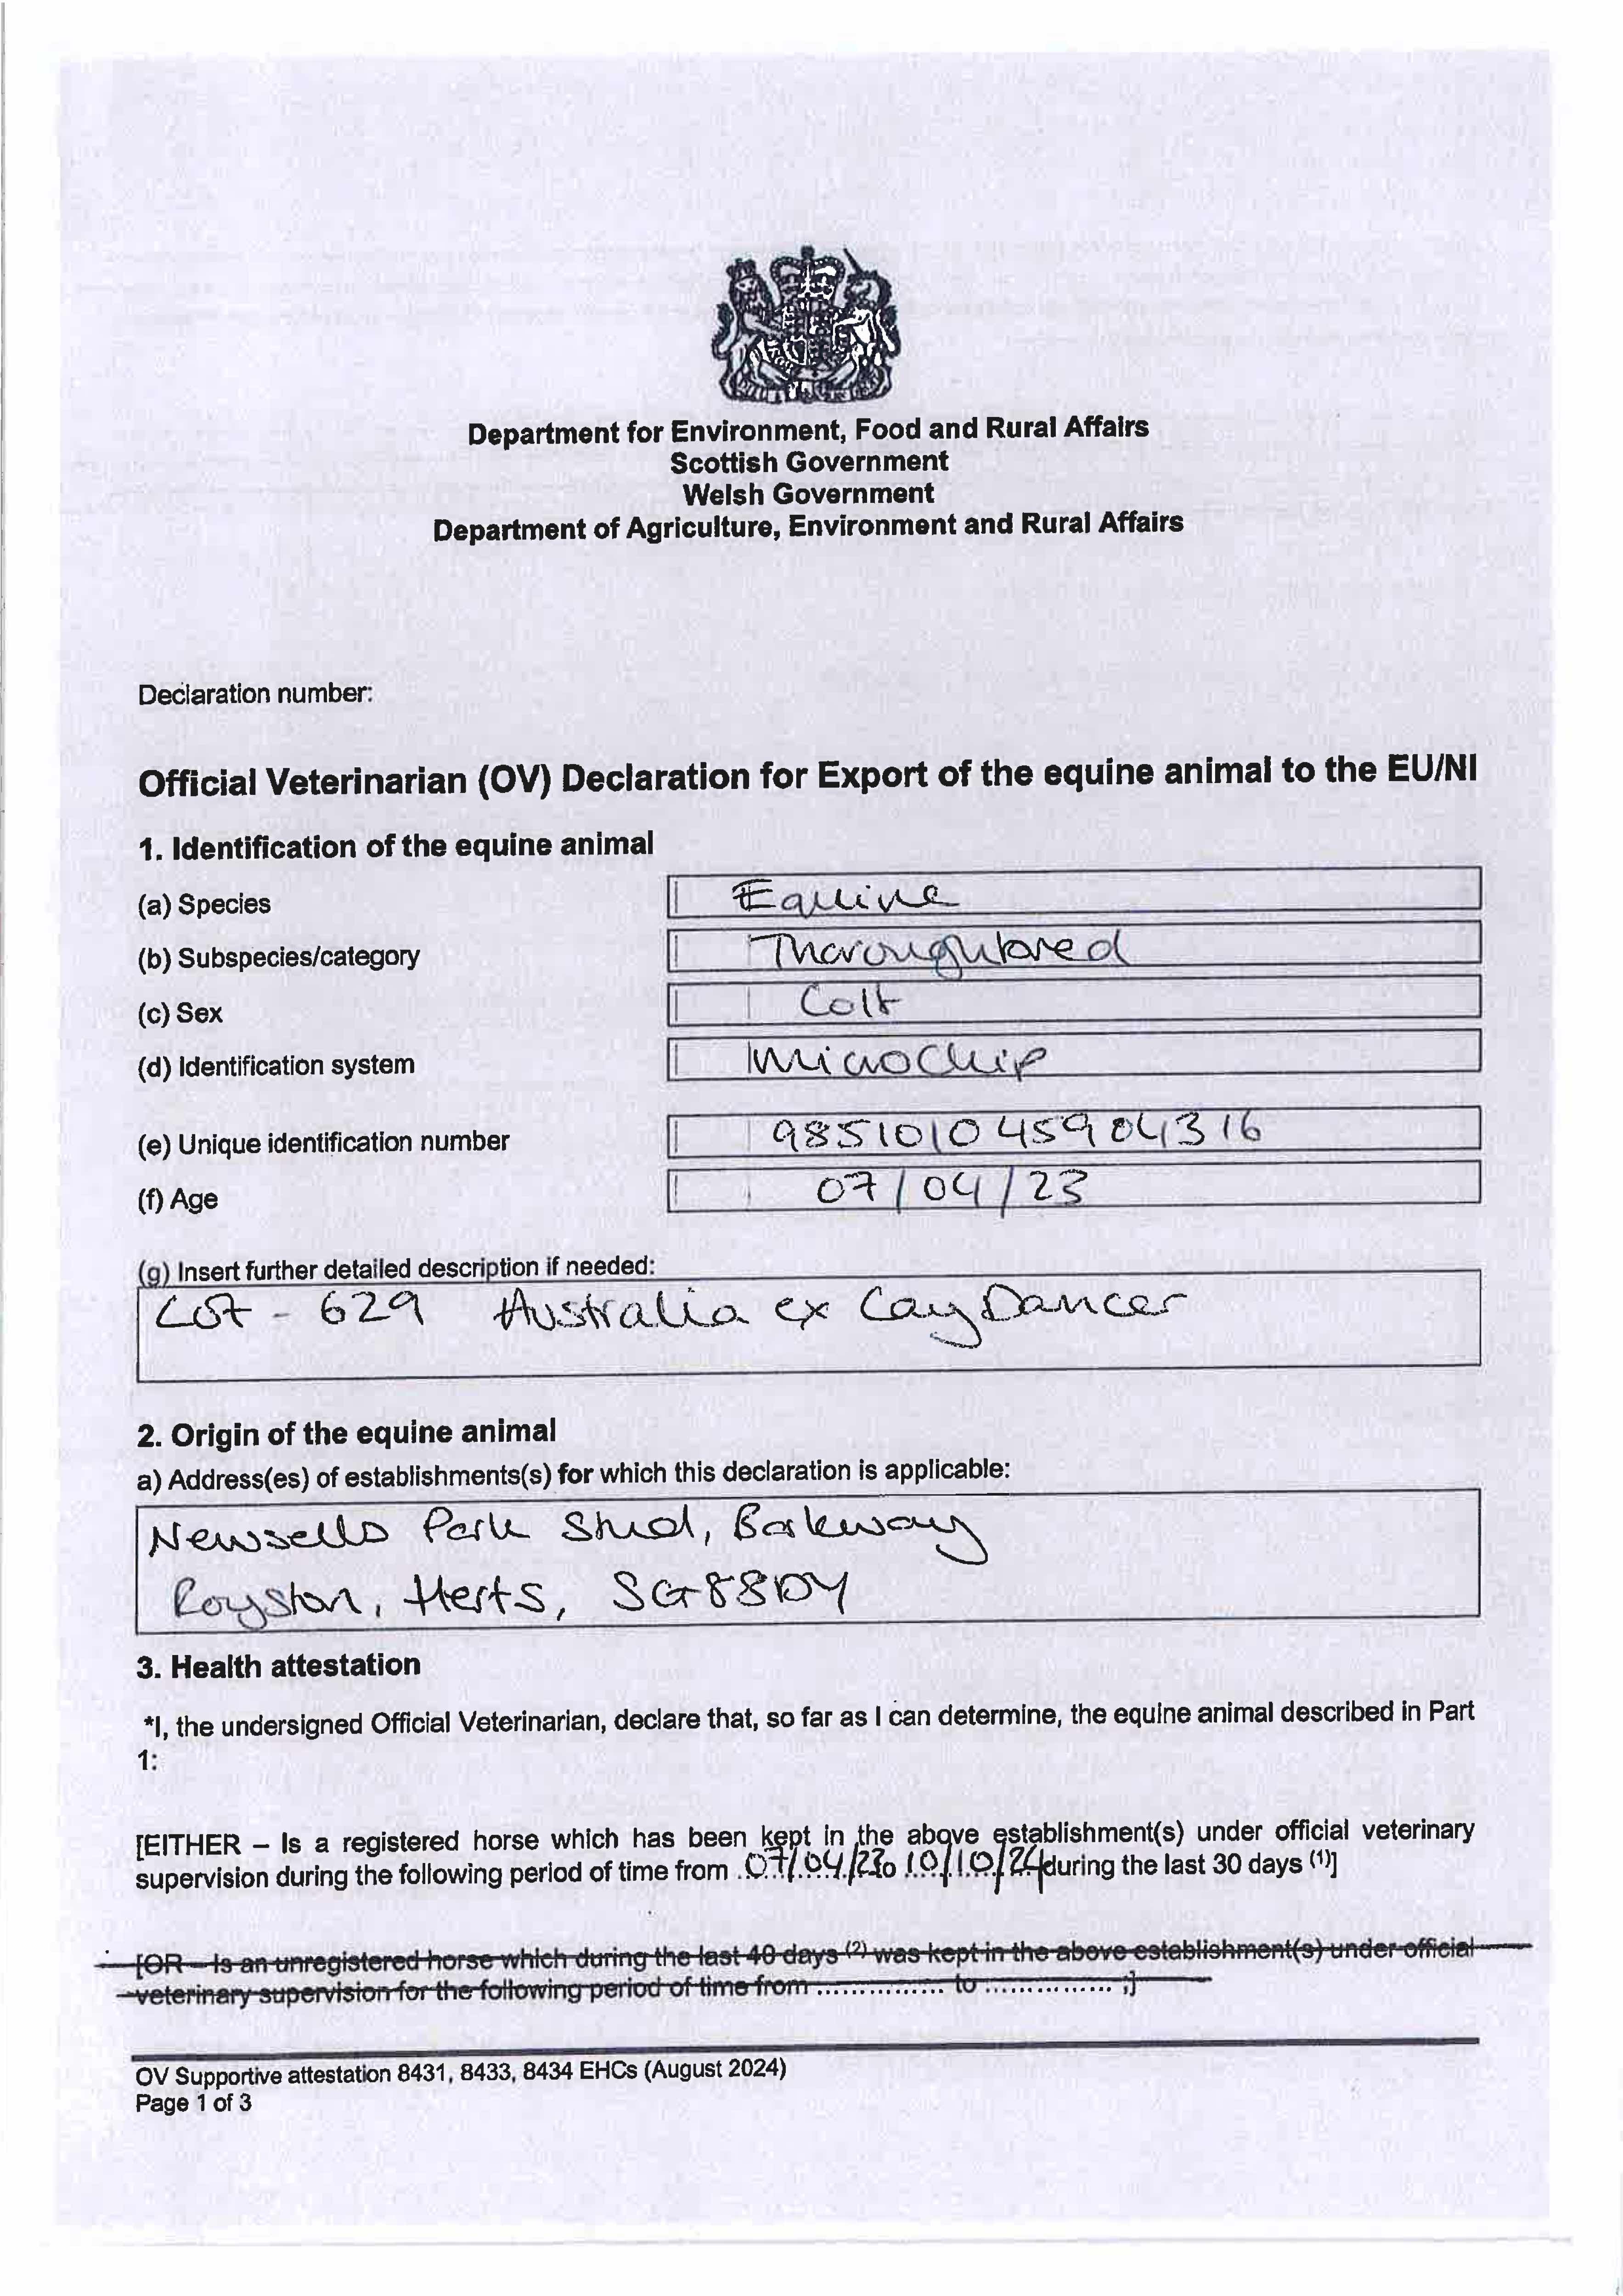 Department for Environment, Food and Rural Affairs
Scottish Government
Welsh Government
Department of Agriculture, Environment and Rural Affairs
Declaration number:
Official Veterinarian (OV) Declaration for Export of the equine animal to the EU/NI
1. Identification of the equine animal
(a) Species Equine
(b) Subspecies/category Thoroughbred
(c) Sex Colt
(d) Identification system Microchip
(e) Unique identification number 985101045904316
(f) Age 07/04/23
(g) Insert further detailed description if needed:
Lot - 629 Australia ex Cay Dancer
2. Origin of the equine animal
a) Address(es) of establishments(s) for which this declaration is applicable:
Newsells Park Stud, Barkway
Royston, Herts, SG88DY
3. Health attestation
*I, the undersigned Official Veterinarian, declare that, so far as I can determine, the equine animal described in Part
1:
[EITHER – Is a registered horse which has been kept in the above establishment(s) under official veterinary
supervision during the following period of time from 07/04/23 to 10/10/24 during the last 30 days (1)]
[OR – Is an unregistered horse which during the last 40 days (2) was kept in the above establishment(s) under official
veterinary supervision for the following period of time from ................ to ................ ;]
OV Supportive attestation 8431, 8433, 8434 EHCs (August 2024)
Page 1 of 3